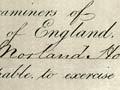 xaminers of
of England,
Morland Ho
hable, to exercise